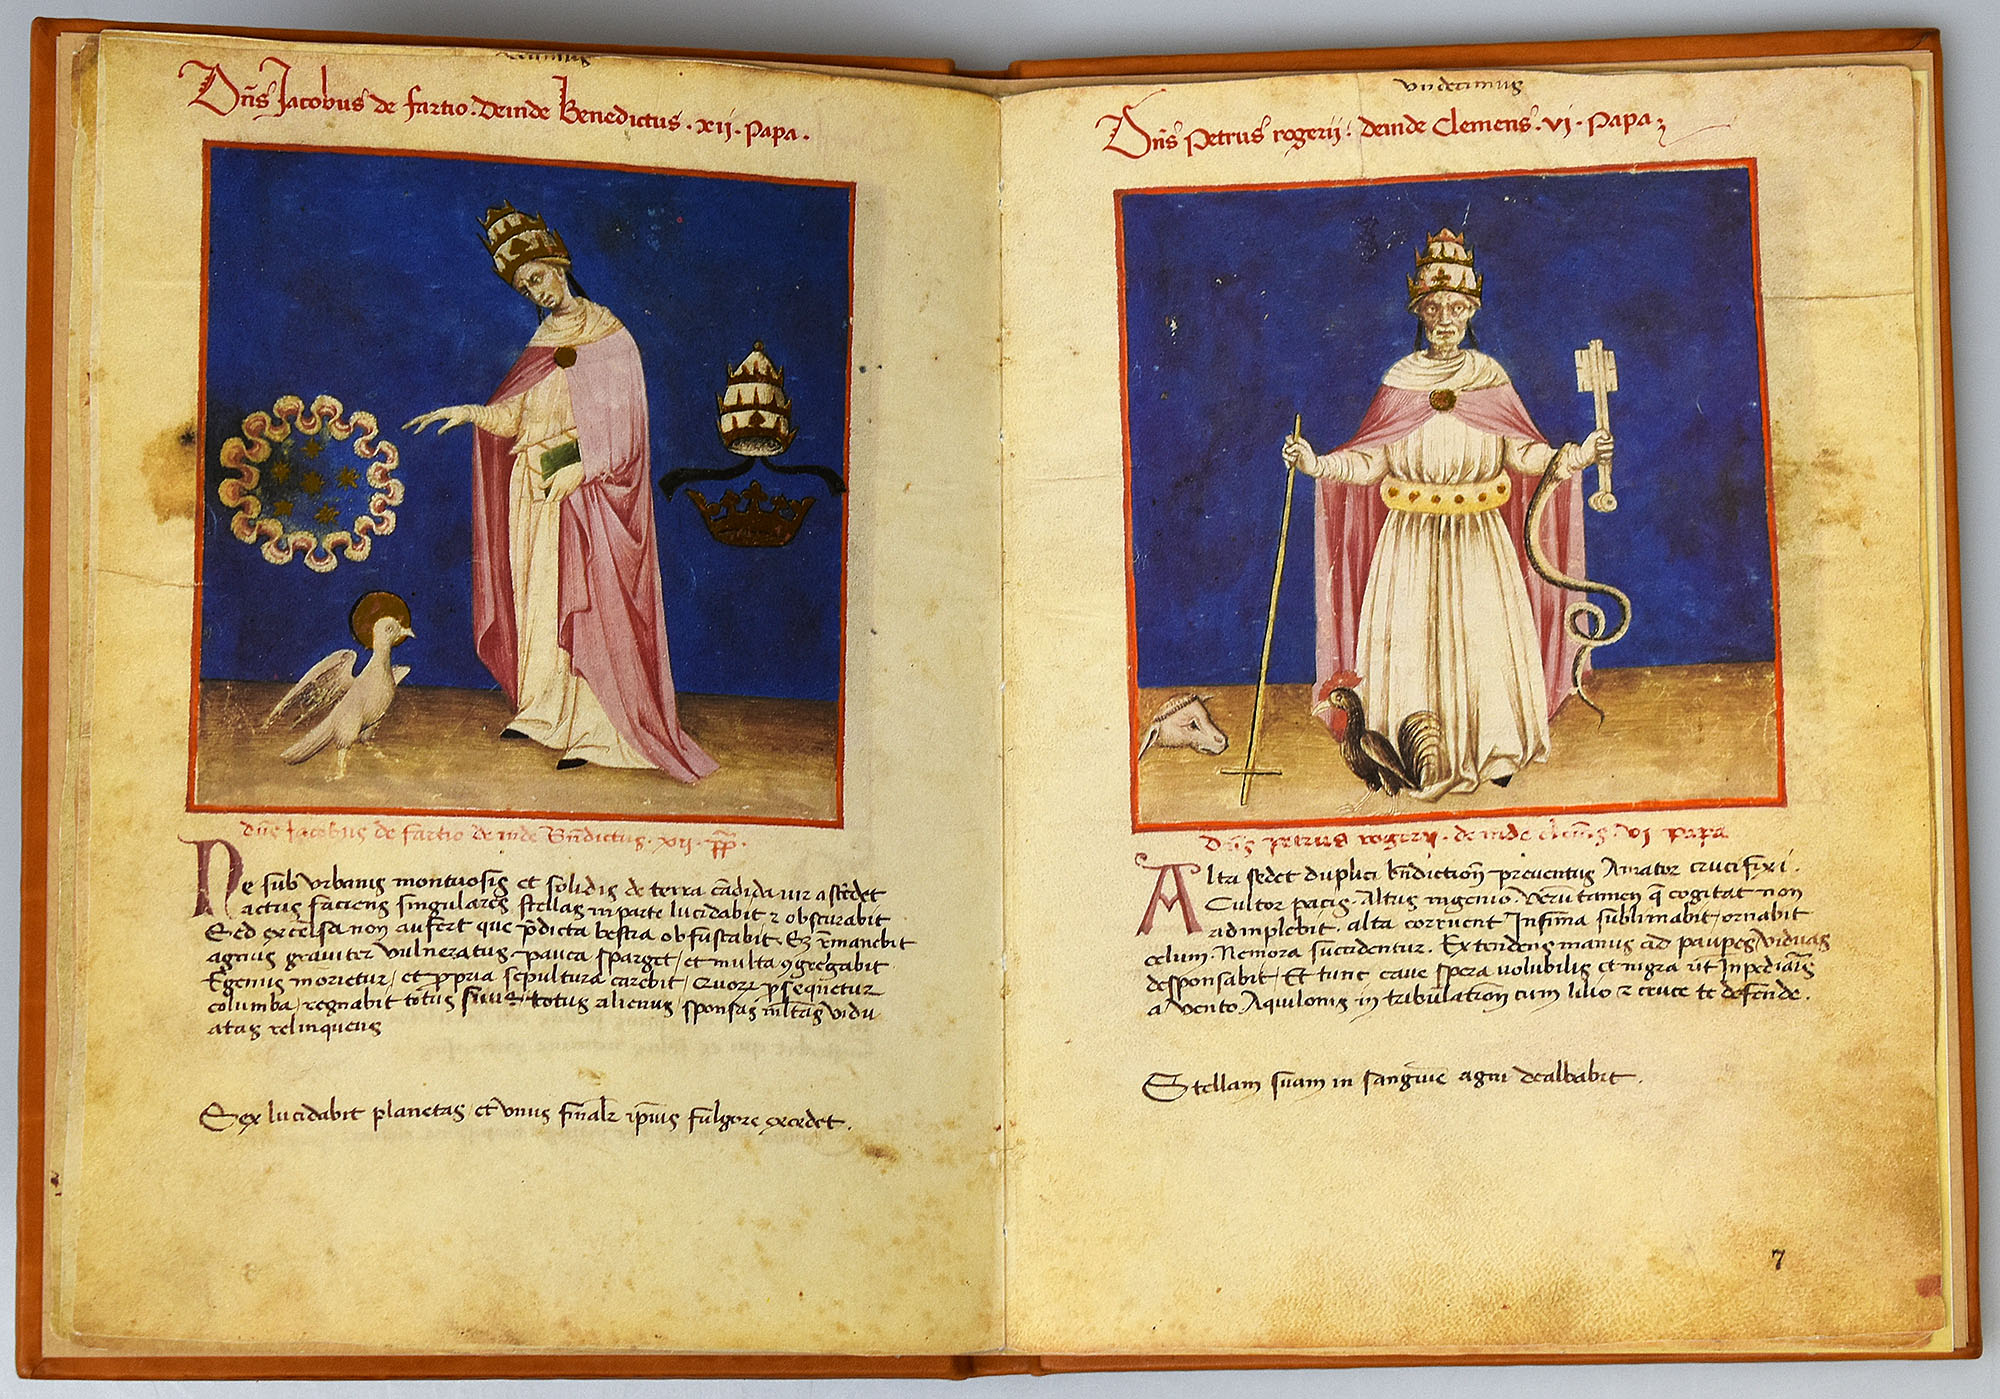 Dn̄s Jacobus de fartio. Deinde Benedictus . xii . Papa .
dn̄s Jacobus de fartio de inde Bn̄dictus . xii . pp̄ .
De sub vrbanis montuosis et solidis de terra cādida uir ascēdet
actus faciens singulares stellas in parte lucidabit ⁊ obscurabit
Sed excelsa non aufert que p̄dicta bestia obfuscabit.
agnus grauiter vulneratus pauca sparget / et multa ꝯgregabit
Egenus morietur / et ꝓpria sepultura carebit /
columba / regnabit totus suus totus alienus / sponsas vidu
atas relinquens
Sex lucidabit planetas / et vnus ip̄ius fulgore excedet .
vndecimus
Dn̄s Petrus rogerij : deinde Clemens . vj . Papa ;
Dn̄s petrus rogerij . de inde clem̄s . vi papa
Alta sedet duplici bn̄diction̄ preuentus Amator crucifixi .
Cultor pacis . Altus ingenio . Verū tamen q̄ cogitat non
adinplebit . alta corruent Infima sublimabit / ornabit
celum . Nemora succidentur . Extendens manus ad paupes / viduas
desponsabit / Et tunc caue spera volubilis et nigra
a vento Aquilonis in tribulation̄ cum ⁊ cruce te defende .
Stellam suam in sanguine agni dealbabit .
7